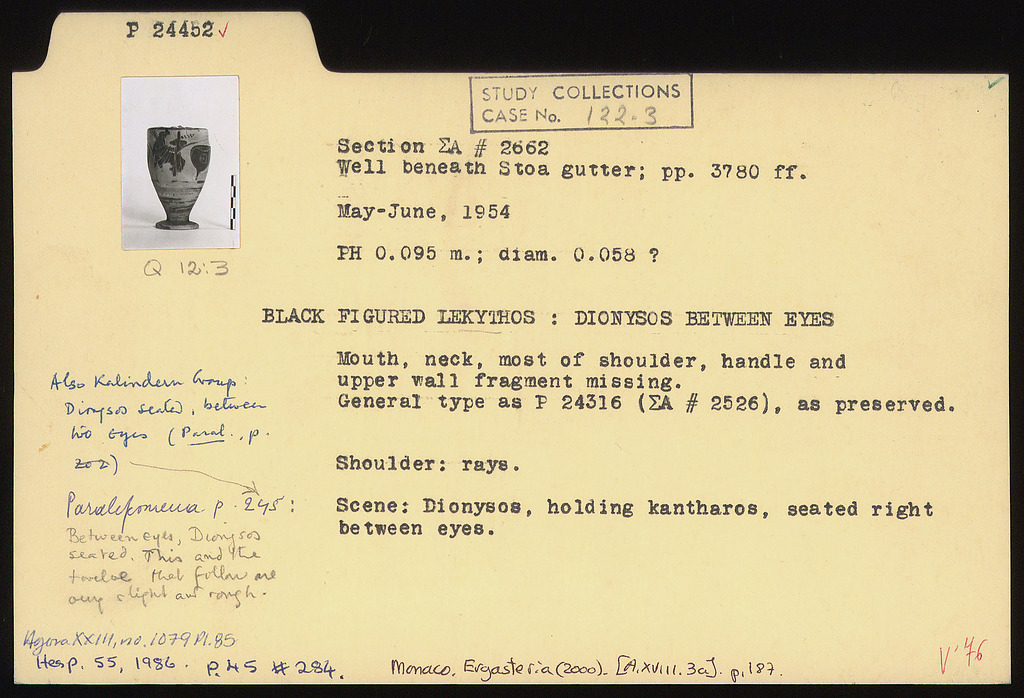 P 24452 ✓
STUDY COLLECTIONS
CASE No. 122-3
Section ΣA # 2662
Well beneath Stoa gutter; pp. 3780 ff.
May-June, 1954
PH 0.095 m.; diam. 0.058 ?
Q 12:3
BLACK FIGURED LEKYTHOS : DIONYSOS BETWEEN EYES
Mouth, neck, most of shoulder, handle and
upper wall fragment missing.
General type as P 24316 (ΣA # 2526), as preserved.
Shoulder: rays.
Scene: Dionysos, holding kantharos, seated right
between eyes.
Also Kalinderu Group:
Dionysos seated, between
two eyes (Paral., p.
202)
Paralipomena p. 245:
Between eyes, Dionysos
seated. This and the
twelve that follow are
very slight and rough.
Agora XXIII, no. 1079 Pl. 85
Hesp. 55, 1986. p. 45 # 284.
Monaco, Ergasteria (2000). [A.XVIII.3a]. p. 187.
V '76